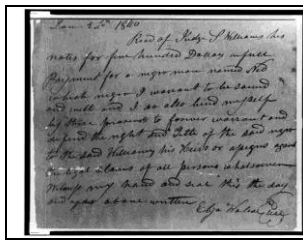 Jan 2nd 1840
Recd of Judge S Williams his
notes for five hundred Dollars in full
Payment for a negro man named Ned
which negro I warrant to be sound
and well and I do also bind myself
by these presents to forever warrant and
defend the right and Title of the said negro
to the said Williams his heirs or assigns against
the legal claims of all persons whatsoever
Witness my hand and seal this the day
and year above written
Eliza Wallace Seal